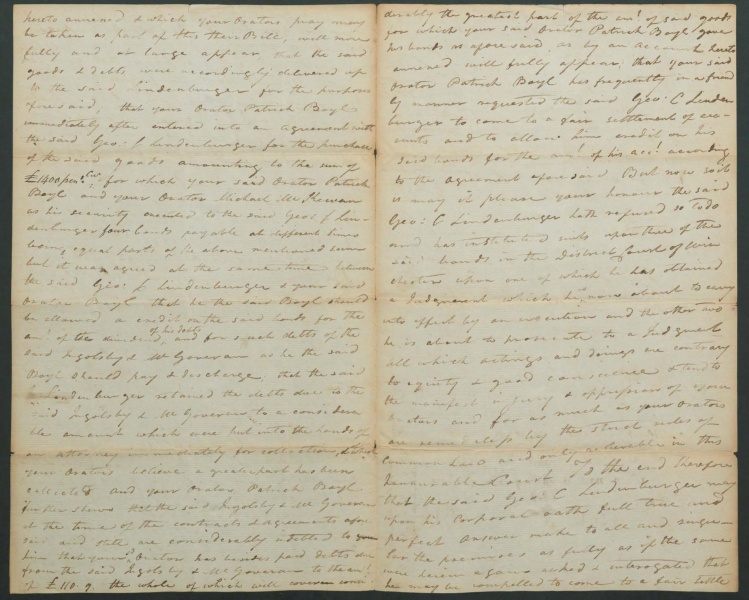 hereto annexed & which your Orators pray may
be taken as part of this their Bill, will more
fully and at large appear that the said
goods & debts were accordingly delivered up
to the said Lindenburger for the purposes
aforesaid, that your Orator Patrick Boyl
immediately after entered into an agreement with
the said Geo: C Lindenburger for the purchase
of the said goods amounting to the sum of
£1400 for which your said Orator Patrick
Boyl and your Orator Michael McKewan
as his security executed to the said Geo: C Lin-
denburger four bonds payable at different times
being equal parts of the above mentioned sum
but it was agreed at the same time between
the said Geo: C Lindenburger & your said
Orator Boyl that he the said Boyl should
be allowed a credit on the said bonds for the
amt of the dividend of his debt, and for such debts of the
said Ingolsby & McGoveran as he the said
Boyl should pay & discharge, that the said
Lindenburger retained the debts due to the
said Ingolsby & McGoveran to a considera
ble amount which were put into the hands of
an attorney immediately for collection, & which
your Orators believe a great part has been
collected and your Orator Patrick Boyl
further shews that the said Ingolsby & McGoveran
at the time of the contracts & agreements afore
said and still are considerably indebted to
him that your Orator has besides paid debts due
from the said Ingolsby & McGoveran to the amt
of £110. 9. the whole of which will cover
derably the greatest part of the amt of said goods
for which your said Orator Patrick Boyl gave
his bonds as aforesaid, as by an account hereto
annexed will fully appear, that your said
Orator Patrick Boyl has frequently in a friend
ly manner requested the said Geo: C Linden
burger to come to a fair settlement of acc-
ounts and to allow him credit on his
said bonds for the amt of his acct according
to the agreement aforesaid But now so it
is may it please your honour the said
Geo: C Lindenburger hath refused so to do
and has instituted suits upon three of the
sd bonds in the District Court of Win
chester upon one of which he has obtained
a Judgment which he is now about to carry
into effect by an execution and the other two
he is about to prosecute to a Judgment
all which actings and doings are contrary
to equity & good conscience & tend to
the manifest injury & oppression of your
Orators and for as much as your Orators
are remediless by the strict rules of
common Law and only relievable in this
honourable Court To the end therefore
that the said Geo: C Lindenburger may
upon his Corporal oath full true and
perfect answer make to all and singu-
lar the premises as fully as if the same
were herein again asked & interogated that
he may be compelled to come to a fair settle